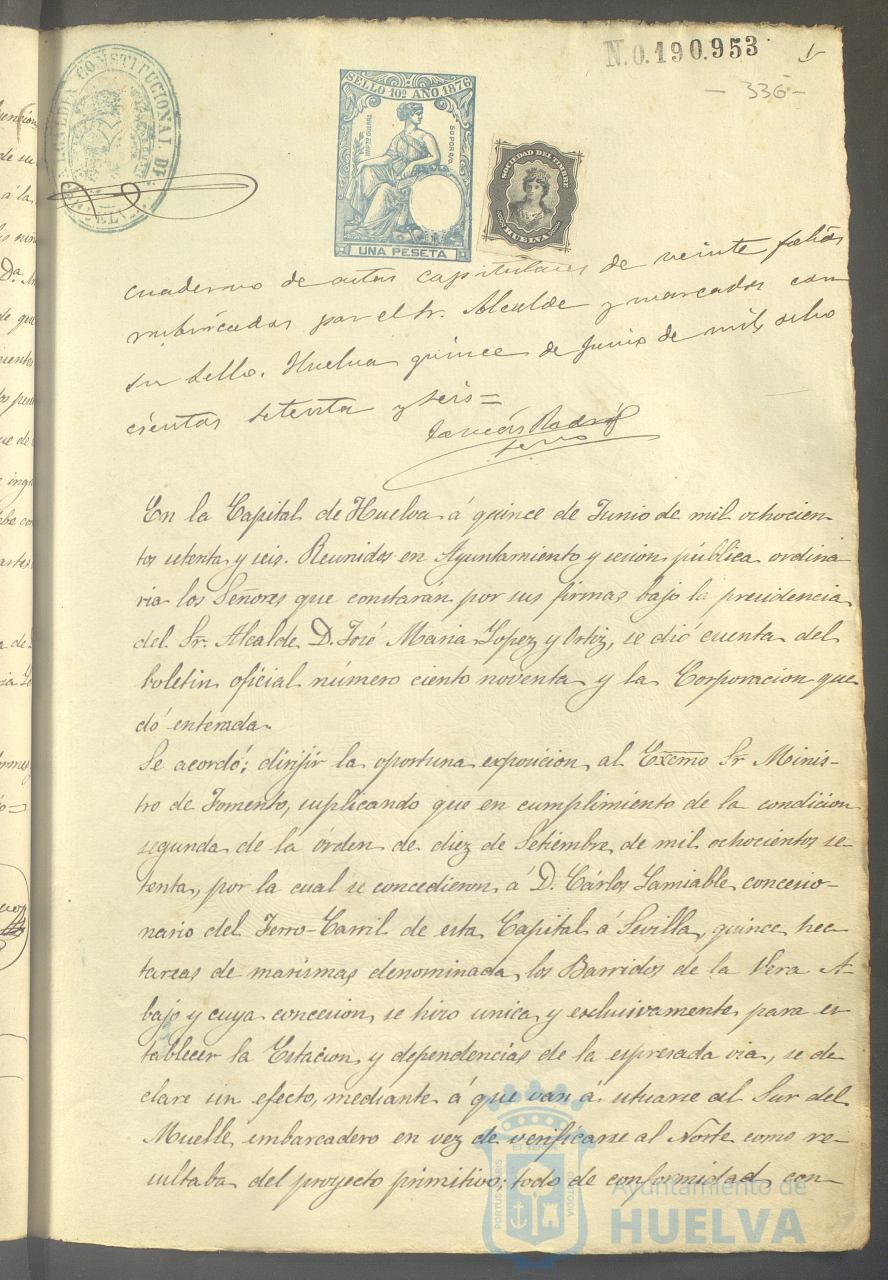 N.0.190.953
- 336 -
ALCALDIA CONSTITUCIONAL DE
SELLO 10º AÑO 1876
UNA PESETA
SOCIEDAD DEL TIMBRE
HUELVA
Cuaderno de actas capitulares de veinte folios
rubricados por el Sr. Alcalde y marcados con
su sello. Huelva quince de Junio de mil ocho
cientos setenta y seis=
En la Capital de Huelva á quince de Junio de mil ochocien
tos setenta y seis. Reunidos en Ayuntamiento y sesion pública ordina
ria los Señores que constarán por sus firmas bajo la presidencia
del Sr. Alcalde D. José Maria Lopez y Ortiz, se dió cuenta del
boletin oficial número ciento noventa y la Corporacion que
dó enterada.
Se acordó; dirijir la oportuna exposicion al Excmo Sr Minis-
tro de Fomento, suplicando que en cumplimiento de la condicion
segunda de la órden de diez de Setiembre de mil ochocientos se
tenta, por la cual se concedieron á D. Cárlos Lamiable concesio-
nario del Ferro-Carril de esta Capital á Sevilla, quince hec
tareas de marismas denominada los Barridos de la Vera A-
bajo y cuya concesion se hizo unica y exclusivamente para es
tablecer la Estacion y dependencias de la espresada via, se de
clare sin efecto, mediante á que van á situarse al Sur del
Muelle embarcadero en vez de verificarse al Norte como re-
sultaba del proyecto primitivo; todo de conformidad con
PORTUS MARIS
ET TERRÆ
CUSTODIA
Ayuntamiento de
HUELVA